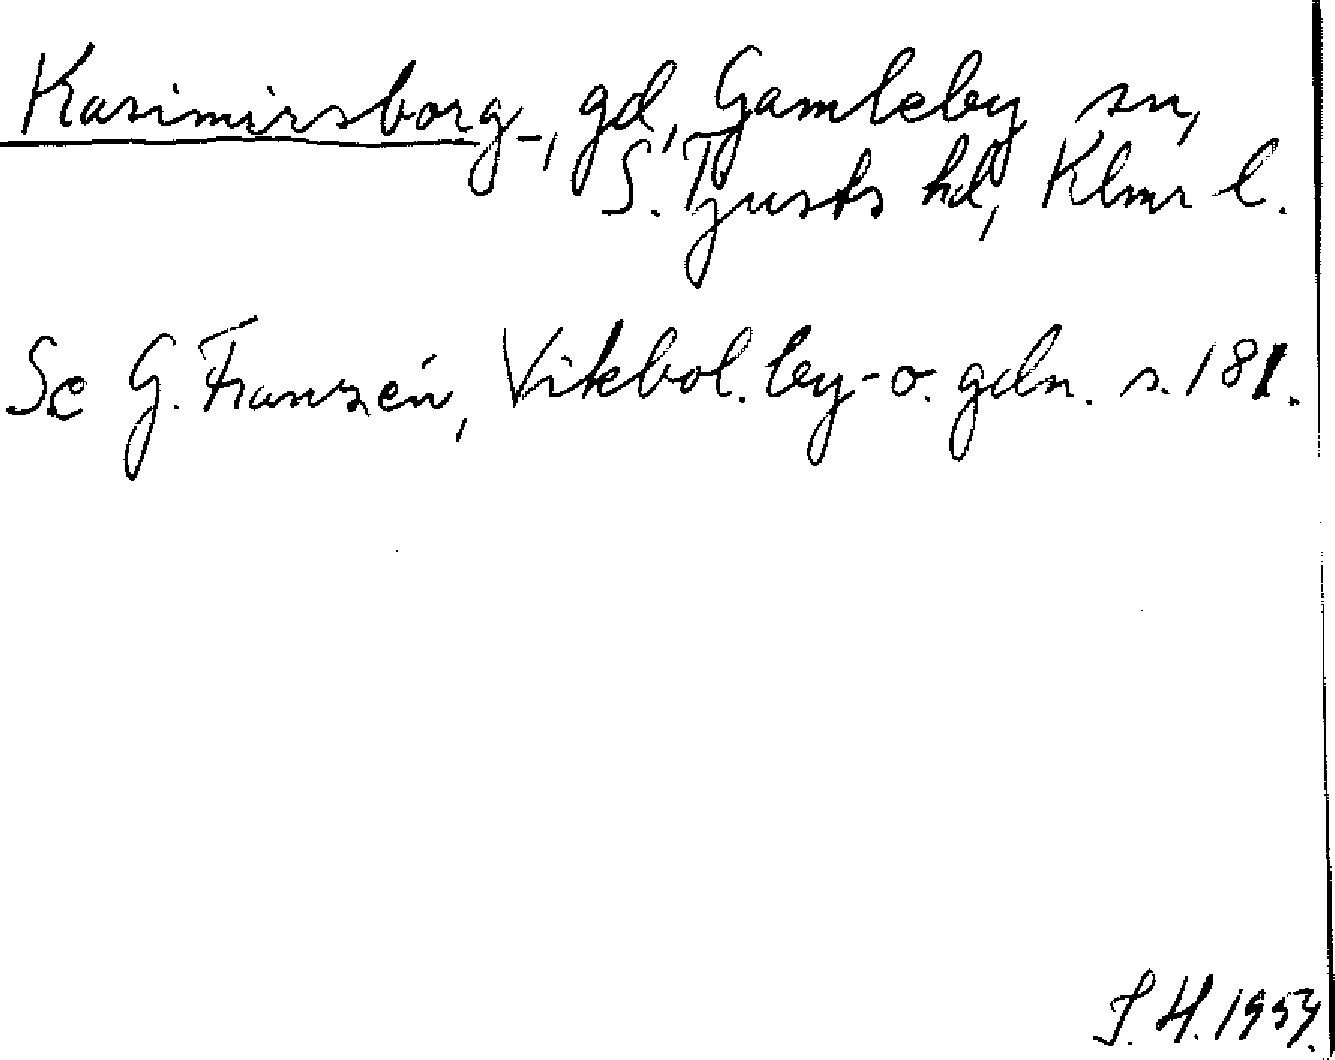 Kasimirsborg, gd, Gamleby sn,
S. Tjusts hd, Klmr l.
Se G. Franzén, Vikbol. by- o. gdn. s. 181.
J. H. 1959.